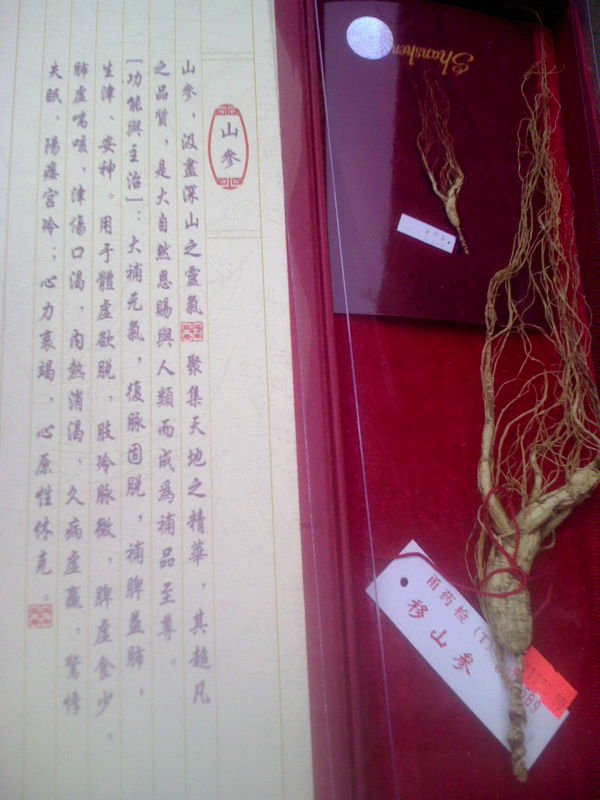 山參
山參，汲盡深山之靈氣 聚集天地之精華，其超凡
之品質，是大自然恩賜與人類而成為補品至尊。
[功能與主治]：大補元氣，復脉固脱，補脾益肺，
生津、安神。用于體虛欲脱，肢冷脉微，脾虛食少，
肺虛喘咳，津傷口渴，内熱消渴，久病虛羸，驚悸
失眠，陽痿宫冷；心力衰竭，心原性休克。
Shanshen
甬药检（T）
移山参